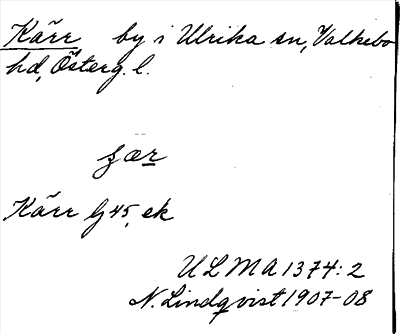 Kärr by i Ulrika sn, Valkebo
hd, Österg. l.
ʒær
Kärr Gj 45, ek
ULMA 1374:2
N. Lindqvist 1907-08